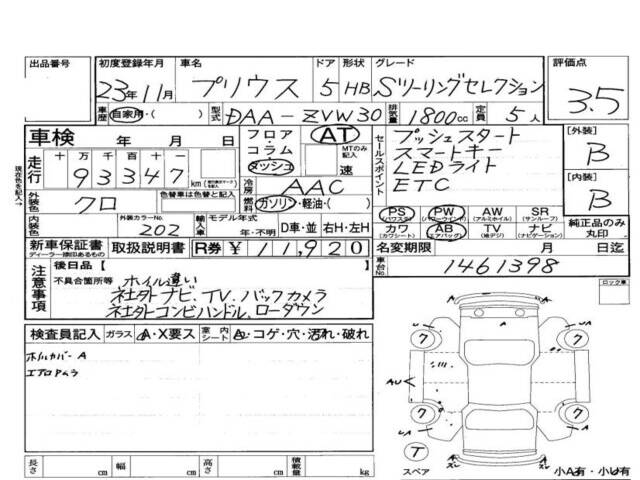 出品番号
初度登録年月 車名 ドア 形状 グレード 評価点
23年11月 プリウス 5 HB Sツーリングセレクション 3.5
車歴 自家用・( ) 型式 DAA-ZVW30 排気量 1800cc 定員 5人
車検 年 月 日 フロア・コラム・ダッシュ AT MTのみ記入 速
セールスポイント プッシュスタート
スマートキー
LEDライト
ETC
[外装] B
[内装] B
現在色を記入→
走行 十 万 千 百 十 一
93347 km
冷房 AAC
外装色 クロ 色替車は色替と記入 燃料 ガソリン・軽油・( )
内装色 外装カラーNo. 202 輸入車 モデル年式 年・不明 D車・並 右H・左H
PS (パワステ) PW (パワーウインド) AW (アルミホイル) SR (サンルーフ)
カワ (カワシート) AB (エアバッグ) TV (地デジ) ナビ (ナビゲーション)
純正品のみ丸印
新車保証書 ディーラー捺印あるもの 取扱説明書 R券 ¥11,920
名変期限 月 日迄
車台No. 1461398
注意事項 後日品【
不具合箇所等 ホイル違い
社外ナビ、TV、バックカメラ
社外コンビハンドル、ローダウン
ロック車
検査員記入 ガラス A・X要ス 室内シート A・コゲ・穴・汚れ・破れ
ホイルカバー A
エアロアムラ
A
UA A
ク ク
AU
ク ク
UA A
T
スペア
小A有・小U有
長さ cm 幅 cm 高さ cm 積載量 kg